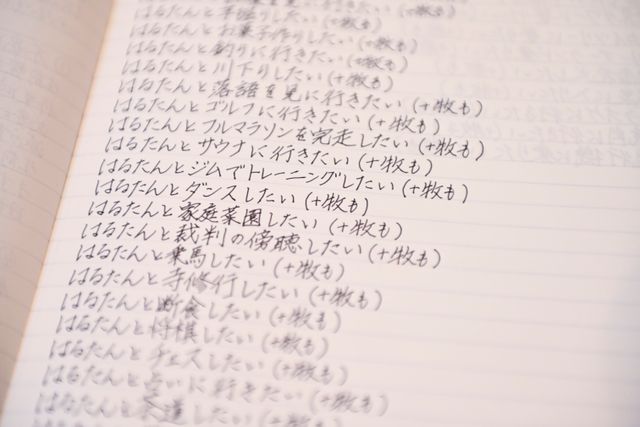 を見に行きたい(+牧も)
はるたんと手掘りしたい(+牧も)
はるたんとお菓子作りしたい(+牧も)
はるたんと釣りに行きたい(+牧も)
はるたんと川下りしたい(+牧も)
はるたんと落語を見に行きたい(+牧も)
はるたんとゴルフに行きたい(+牧も)
はるたんとフルマラソンを完走したい(+牧も)
はるたんとサウナに行きたい(+牧も)
はるたんとジムでトレーニングしたい(+牧も)
はるたんとダンスしたい(+牧も)
はるたんと家庭菜園したい(+牧も)
はるたんと裁判の傍聴したい(+牧も)
はるたんと乗馬したい(+牧も)
はるたんと寺修行したい(+牧も)
はるたんと断食したい(+牧も)
はるたんと将棋したい(+牧も)
はるたんとチェスしたい(+牧も)
はるたんと占いに行きたい(+牧も)
はるたんと茶道したい(+牧も)